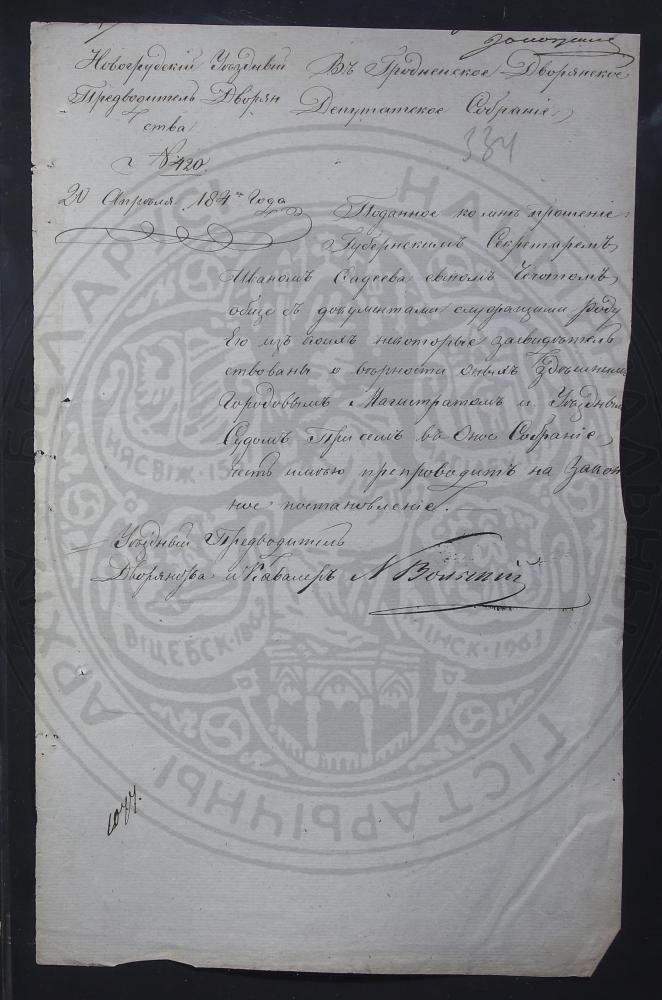 Новогрудскій Уѣздный
Предводитель Дворян
ства
№ 420
20 Апрѣля 184 года
Въ Гродненское Дворянское
Депутатское Собраніе
334
Поданное ко мнѣ прошеніе
Губернскимъ Секретаремъ
Иваномъ Фадеева сыномъ Чечотомъ
обще съ документами служащими роду
Его изъ коихъ некоторые засвидѣтель
ствованы о верности оныхъ Здешнимъ
Городовымъ Магистратомъ и Уѣзднымъ
Судомъ При семъ въ Оное Собраніе
честь имѣю препроводить на Закон
ное постановленіе.
Уѣздный Предводитель
Дворянства и Кавалеръ
1077.
АРХІЎ
БЕЛАРУСІ
ГІСТАРЫЧНЫ
НЯСВІЖ
ВІЦЕБСК
МІНСК